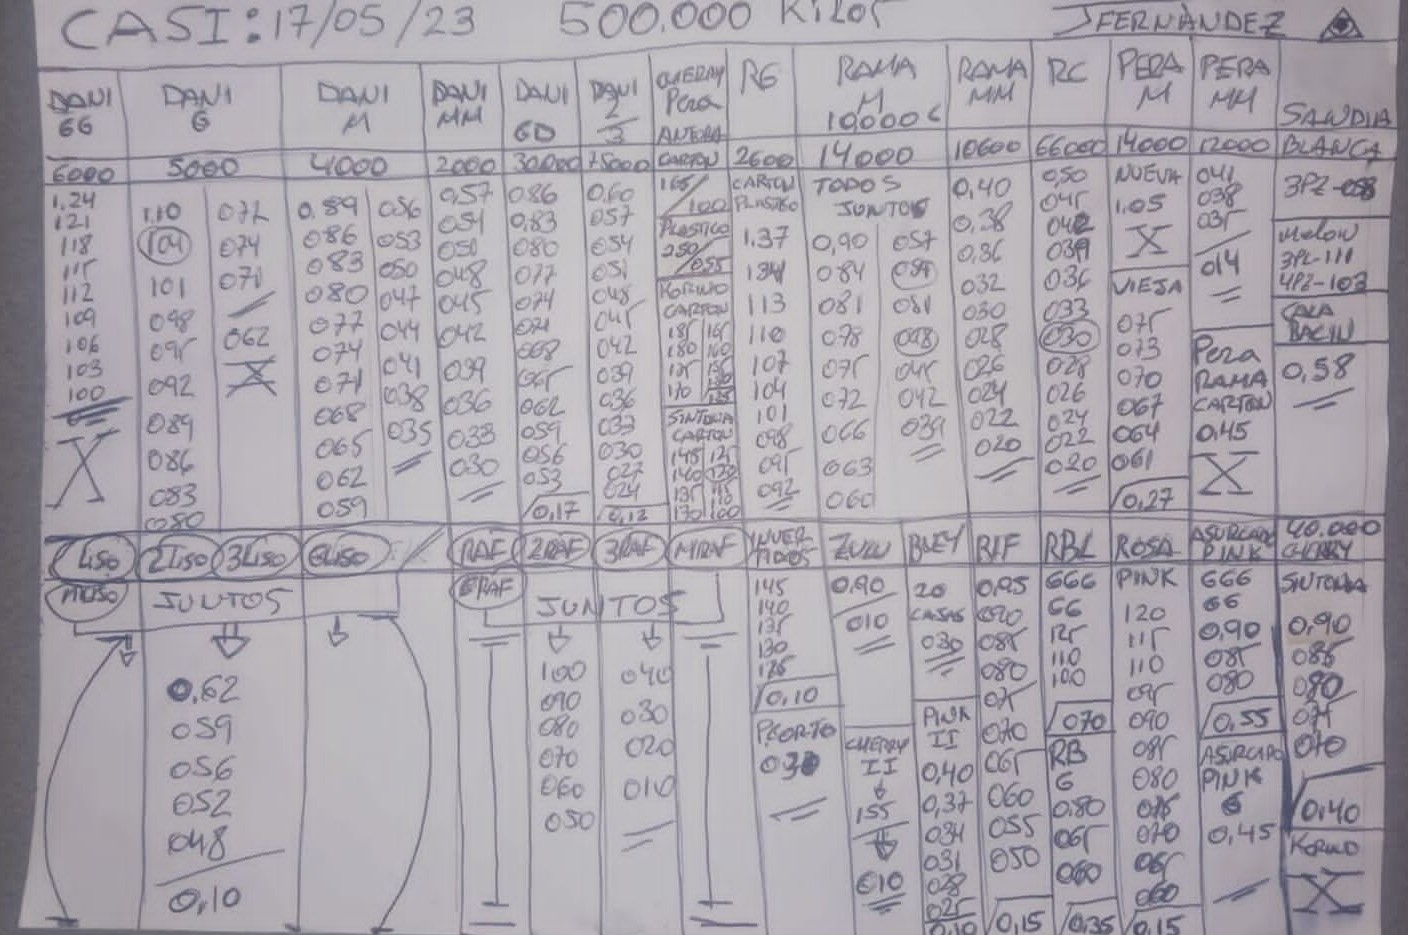 CASI: 17/05/23 500.000 Kilos JFERNÀNDEZ
DANI GG
6000
1,24
121
118
115
112
109
106
103
100
X
DANI G
5000
1,10
104
101
098
095
092
089
086
083
080
077
074
071
062
X
DANI M
4000
0,89
086
083
080
077
074
071
068
065
062
059
056
053
050
047
044
041
038
035
DANI MM
2000
0,57
054
050
048
045
042
039
036
033
030
DANI GD
30.000
0,86
0,83
080
077
074
071
068
065
062
059
056
053
0,17
DANI 2/3
75000
0,60
057
054
051
048
045
042
039
036
033
030
027
024
0,12
CHERRY
Pera
ANTORA
CARTON
165/100
PLASTICO
250/055
KORINO
CARTON
185 165
180 160
SINTONIA
CARTON
145 125
RG
2600
CARTON
PLASTICO
1.37
134
113
110
107
104
101
098
095
092
RAMA M
10,000 C
14000
TODOS
JUNTOS
0,90
084
081
078
075
072
066
063
060
057
054
051
048
045
042
039
RAMA MM
10600
0,40
0,38
0,36
032
030
028
026
024
022
020
RC
66000
0,50
045
042
039
036
033
030
028
026
024
022
020
PERA M
14000
NUEVA
1.05
X
VIEJA
075
073
070
067
064
061
0,27
PERA MM
12000
041
038
035
014
Pera
RAMA
CARTON
0,45
X
SANDIA
BLANCA
3PZ-058
Melon
3PL-111
4PZ-103
CALA
BACIN
0,58
LISO
2LISO
3LISO
GLISO
MLISO
JUNTOS
0,62
059
056
052
048
0,10
RAF
2RAF
3RAF
MRAF
GRAF
JUNTOS
100
090
080
070
060
050
040
030
020
010
INVER
TIDOS
145
140
135
130
125
0,10
P.CORTO
ZULU
0,90
010
CHERRY
II
155
010
BUEY
20
CAJAS
030
PINK
II
0,40
0,37
034
031
028
025
0,10
RIF
0,95
090
085
080
075
070
065
060
055
050
0,15
RBL
666
66
125
110
100
070
RB
G
0.80
065
060
0,35
ROSA
PINK
120
115
110
095
090
085
080
075
070
065
060
0,15
ASURCADO
PINK
666
66
0,90
085
080
0,55
ASURCADO
PINK
G
0,45
40.000
CHERRY
SINTONIA
0,90
085
080
075
070
0,40
KORINO
X